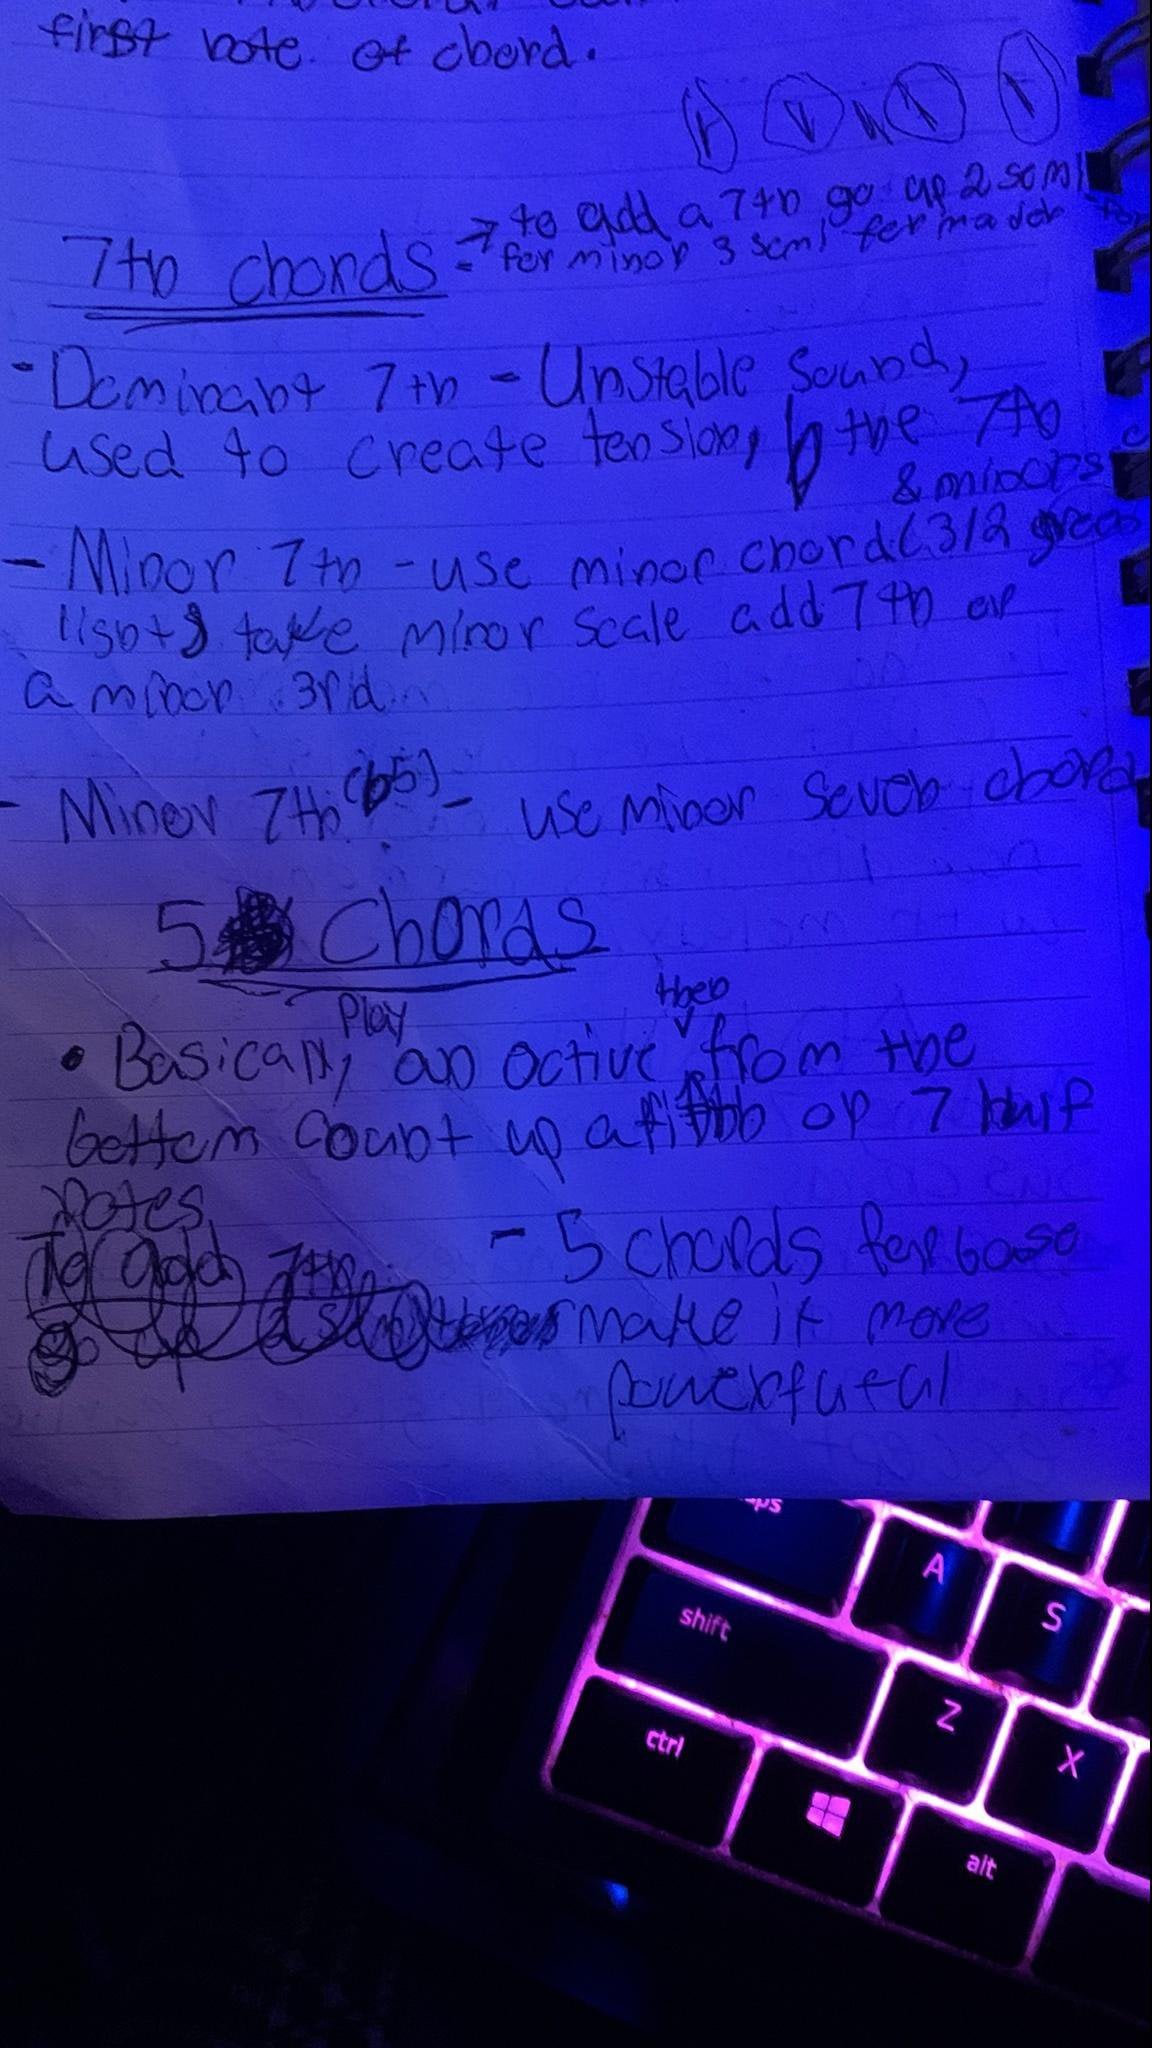 first note of chord.
→ to add a 7th go up 2 semi
7th chords = for minor 3 semi for major
- Dominant 7th - Unstable sound,
used to create tension, b the 7th
& minors
- Minor 7th - use minor chord (3/2 green
lisht) take minor scale add 7th or
a minor 3rd
- Minor 7th (b5) - use minor seven chord
5 Chords
Play then
• Basicaly, an octive from the
bottom count up a fifth or 7 half
notes
To add 7th
go up
- 5 chords for base
make it more
powerfutul
ps
A
S
shift
Z
X
ctrl
alt